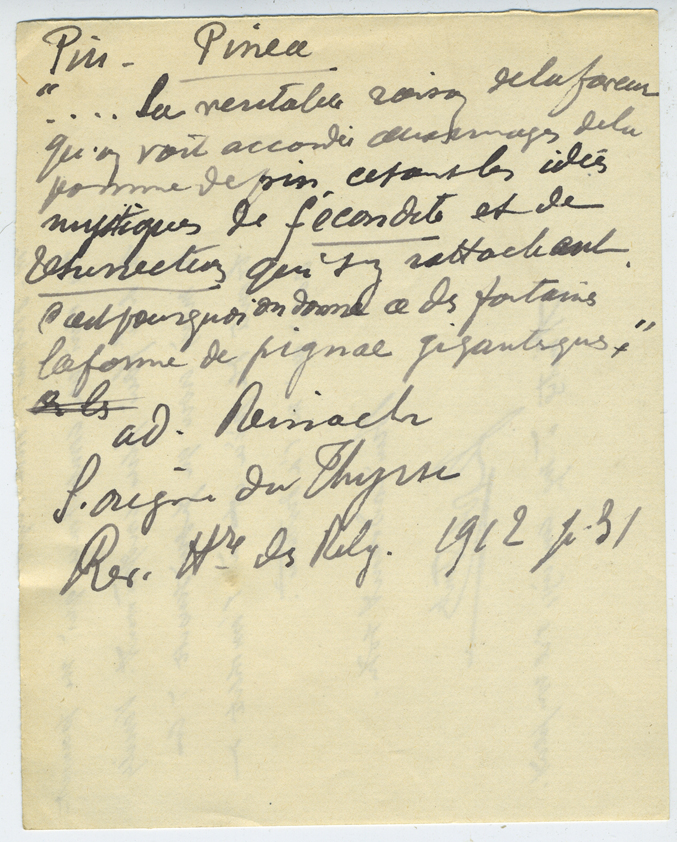 Pin - Pinea
".... La veritable raison de la faveur
qu'on voit accordée aux images de la
pomme de pin, ce sont les idées
mystiques de fécondité et de
résurrection qui s'y rattachent.
C'est pourquoi on donne a des fontaines
la forme de pignae gigantesques."
ad. Reinach
L'origine du Thyrse
Rev. Hre des Relig. 1912 p. 31